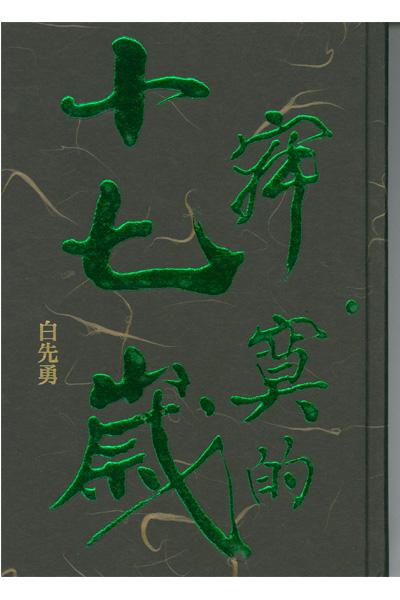 寂寞的
十七歲
白先勇